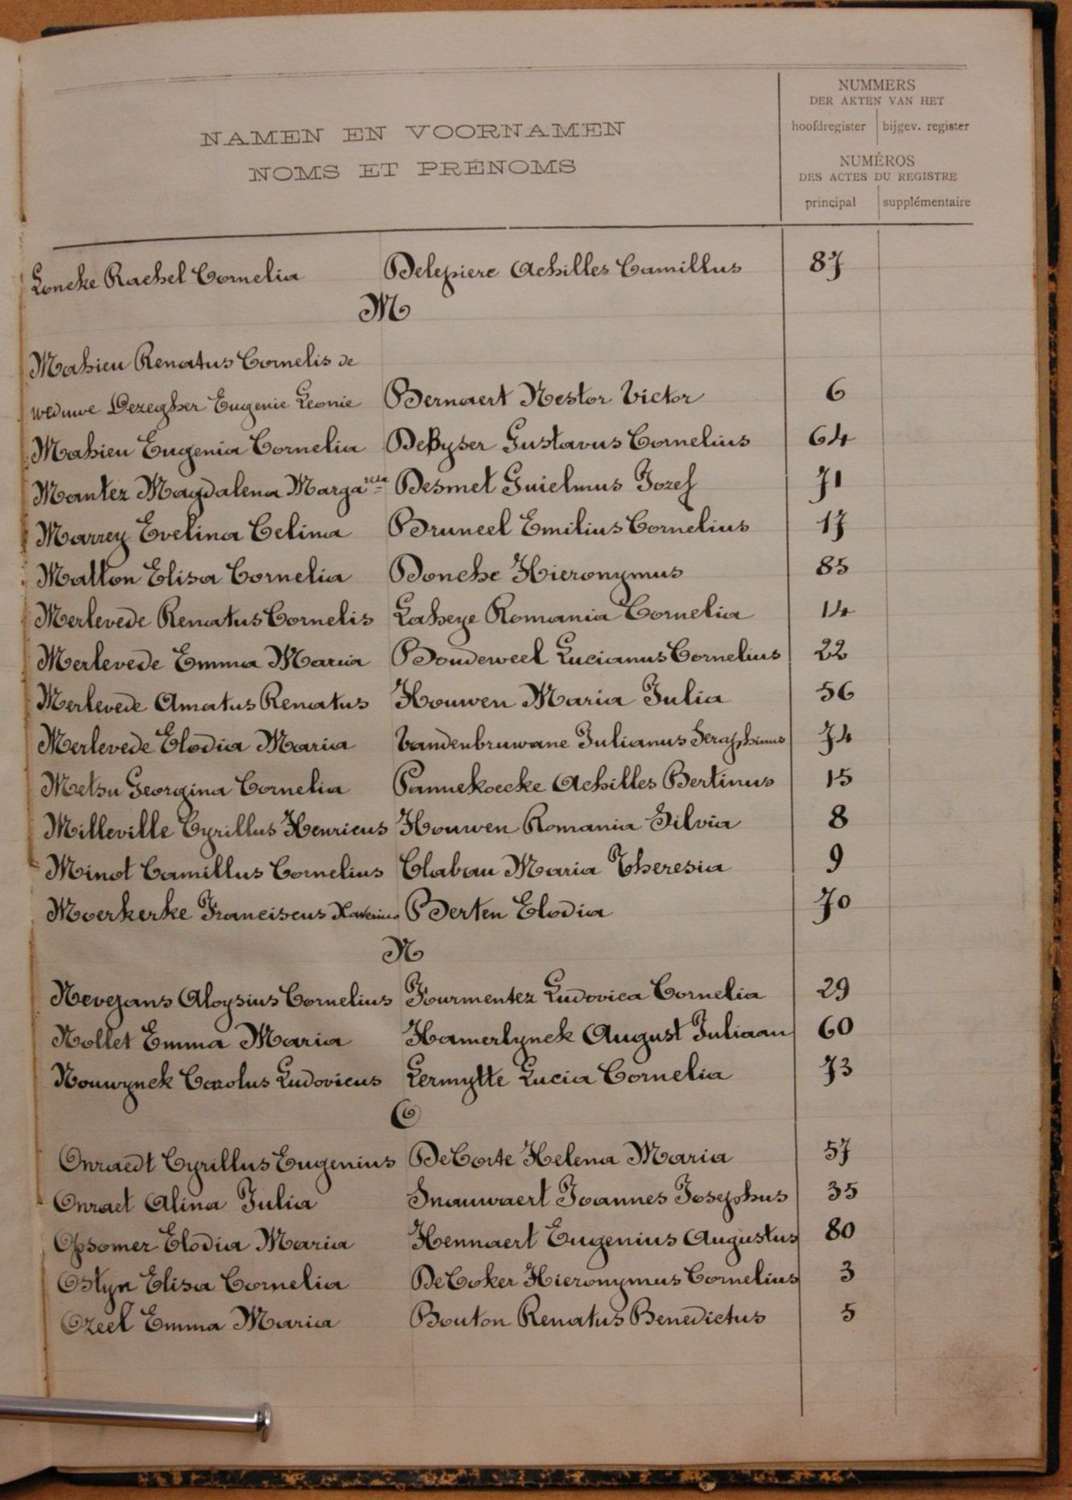 NAMEN EN VOORNAMEN
NOMS ET PRÉNOMS
NUMMERS
DER AKTEN VAN HET
hoofdregister bijgev. register
NUMÉROS
DES ACTES DU REGISTRE
principal supplémentaire
Loncke Rachel Cornelia Delepiere Achilles Camillus 87
M
Mahieu Renatus Cornelis de
weduwe Dezegher Eugenie Leonie Bernaert Nestor Victor 6
Mahieu Eugenia Cornelia DeByser Gustavus Cornelius 64
Mantez Magdalena Margareta Desmet Guielmus Jozef 71
Marrey Evelina Celina Bruneel Emilius Cornelius 17
Matton Elisa Cornelia Donche Hieronymus 85
Merlevede Renatus Cornelis Laheye Romania Cornelia 14
Merlevede Emma Maria Boudeweel Lucianus Cornelius 22
Merlevede Amatus Renatus Houwen Maria Julia 56
Merlevede Elodia Maria Vandenbruwane Julianus Seraphinus 74
Metsu Georgina Cornelia Pannekoecke Achilles Bertinus 15
Milleville Cyrillus Henricus Houwen Romania Silvia 8
Minot Camillus Cornelius Clabau Maria Theresia 9
Moerkerke Franciscus Xaverius Berten Elodia 70
N
Nevejans Aloysius Cornelius Fourmentez Ludovica Cornelia 29
Nollet Emma Maria Hamerlynck August Juliaan 60
Nouwynck Carolus Ludovicus Lermytte Lucia Cornelia 73
O
Onraedt Cyrillus Eugenius DeCorte Helena Maria 57
Onraet Alina Julia Snauwaert Joannes Josephus 35
Opsomer Elodia Maria Hennaert Eugenius Augustus 80
Ostyn Elisa Cornelia DeCoker Hieronymus Cornelius 3
Ozeel Emma Maria Bouton Renatus Benedictus 5